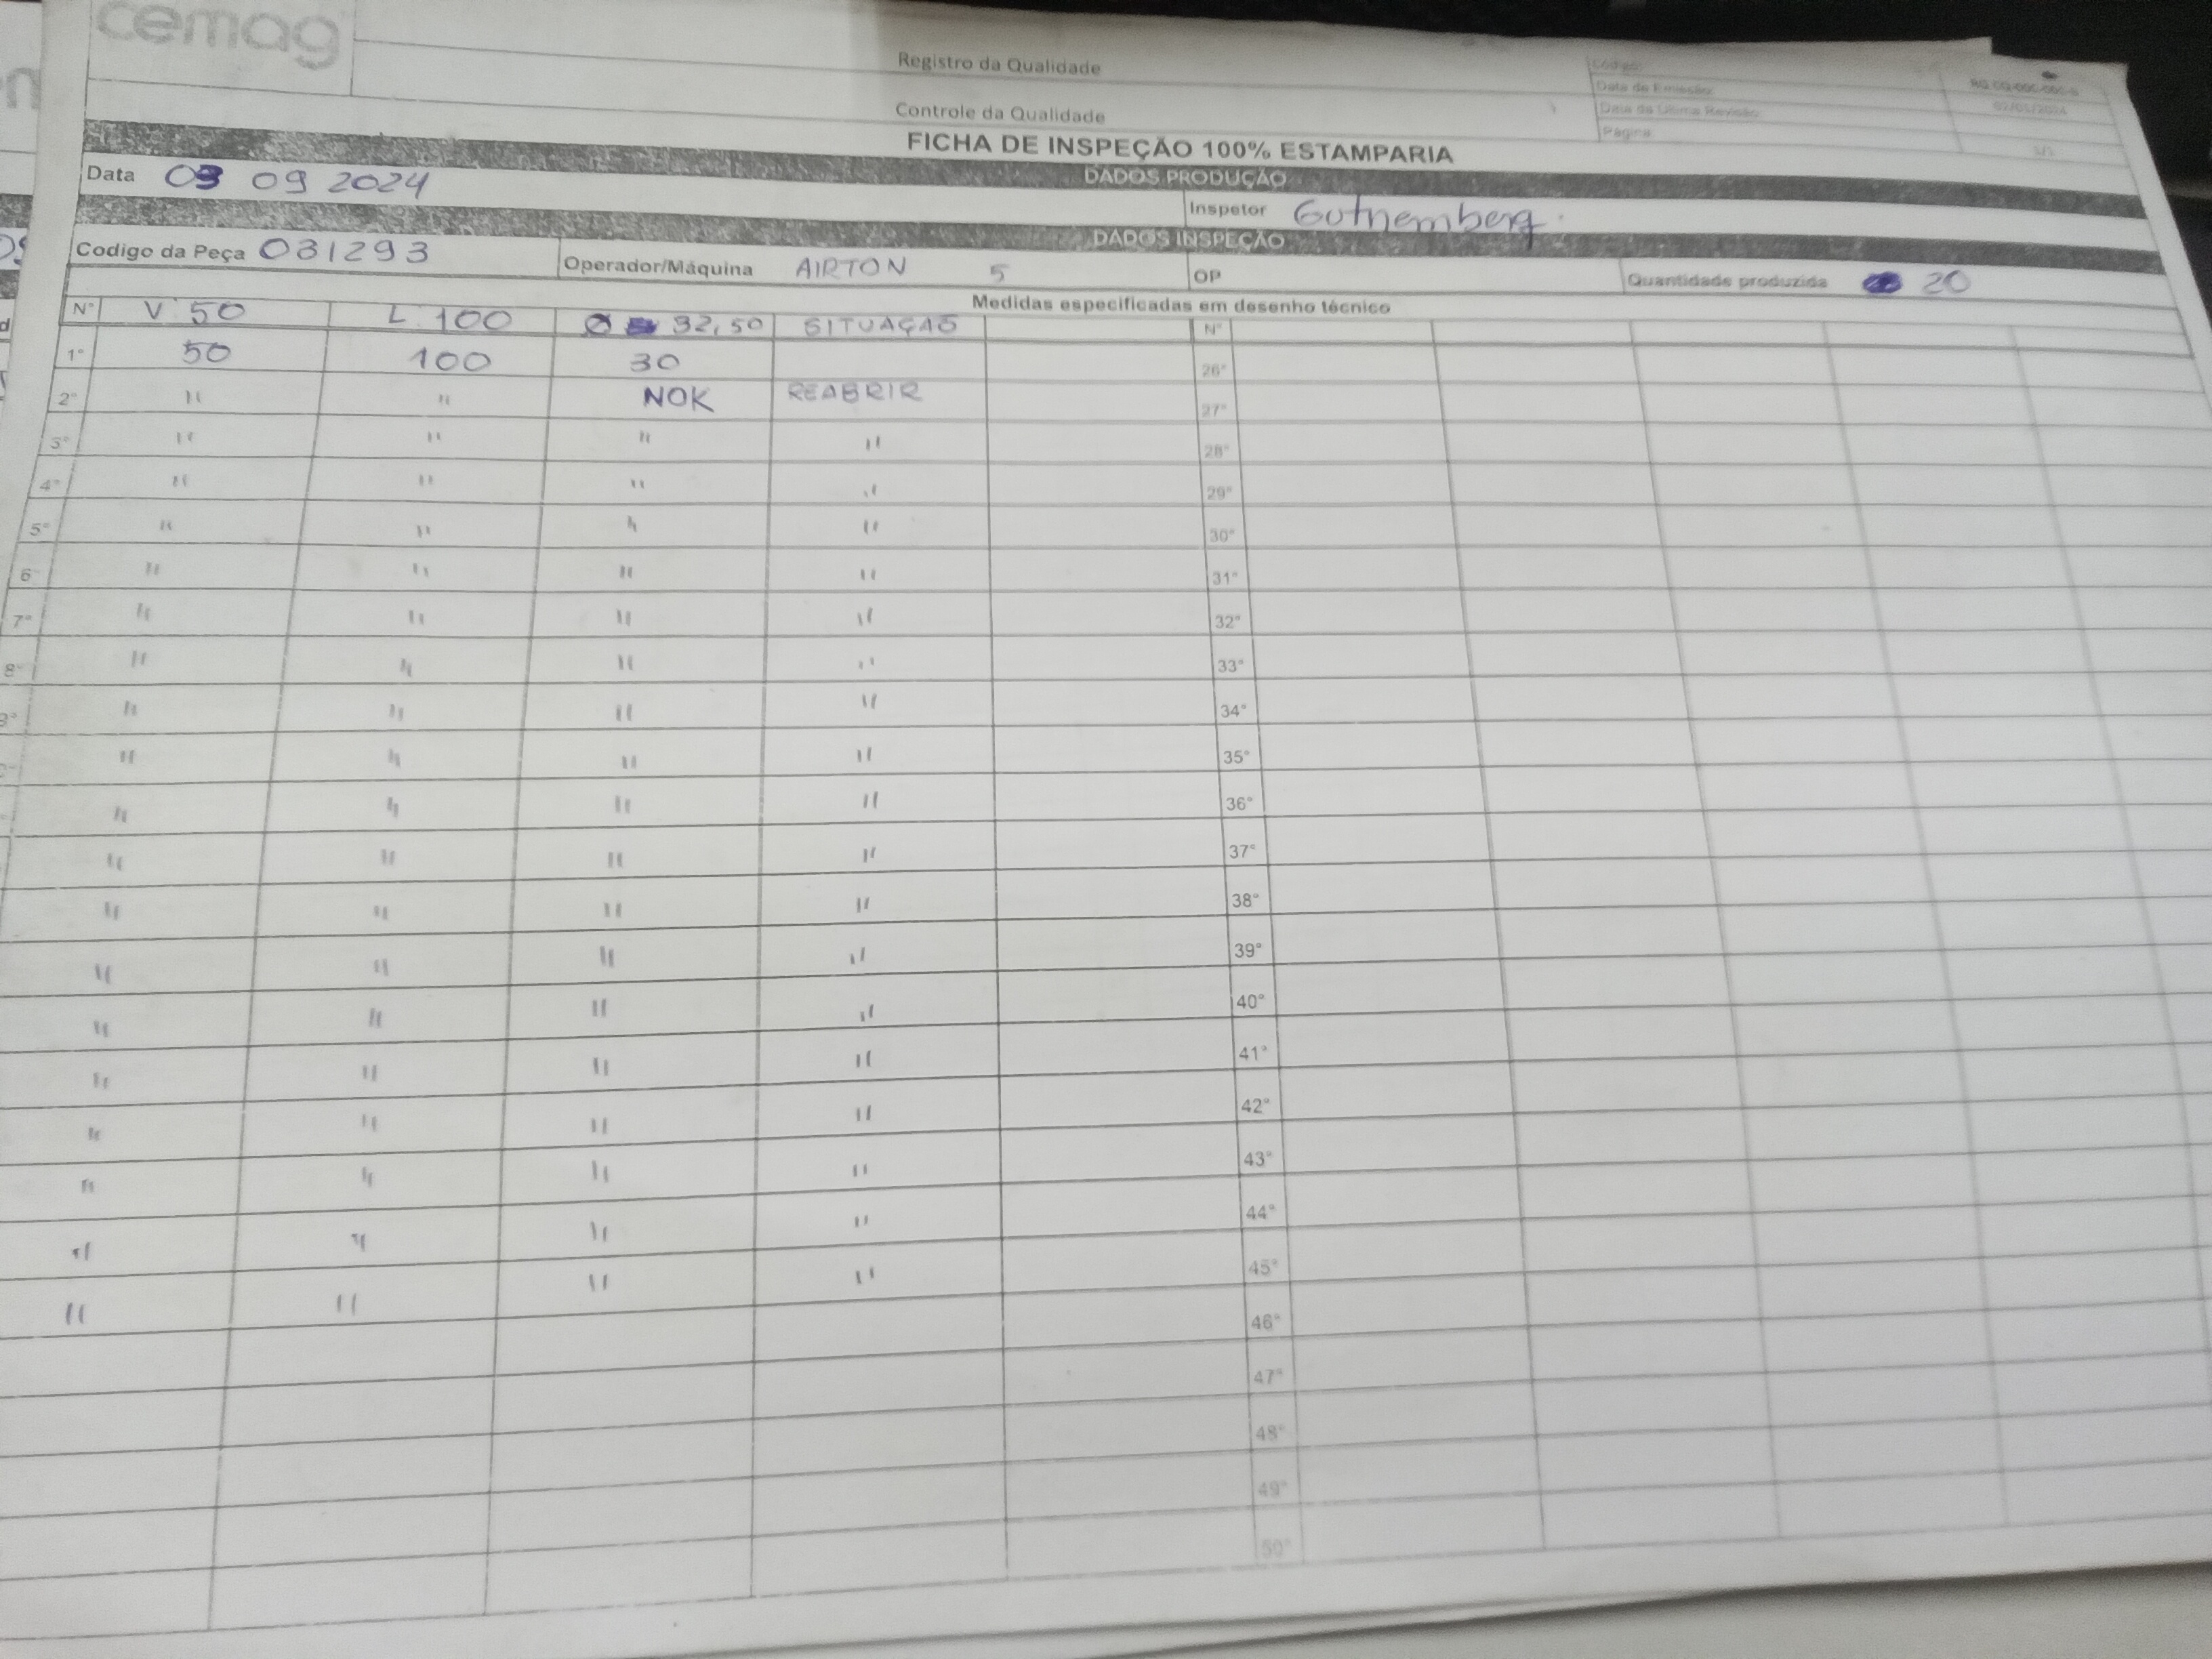 cemag
Registro da Qualidade
Controle da Qualidade
Código:
Data de Emissão:
Data da Última Revisão:
Página:
FICHA DE INSPEÇÃO 100% ESTAMPARIA
DADOS PRODUÇÃO
Data 03 09 2024
Inspetor Guthemberg.
DADOS INSPEÇÃO
Codigo da Peça 031293 Operador/Máquina AIRTON 5 OP Quantidade produzida 20
Medidas especificadas em desenho técnico
N° V 50 L 100 Ø 32,50 SITUAÇÃO N°
1° 50 100 30 26°
2° " " NOK REABRIR 27°
3° " " " " 28°
4° " " " " 29°
5° " " " " 30°
6° " " " " 31°
7° " " " " 32°
8° " " " " 33°
9° " " " " 34°
" " " " 35°
" " " " 36°
" " " " 37°
" " " " 38°
" " " " 39°
" " " " 40°
" " " " 41°
" " " " 42°
" " " " 43°
" " " " 44°
" " " " 45°
46°
47°
48°
49°
50°